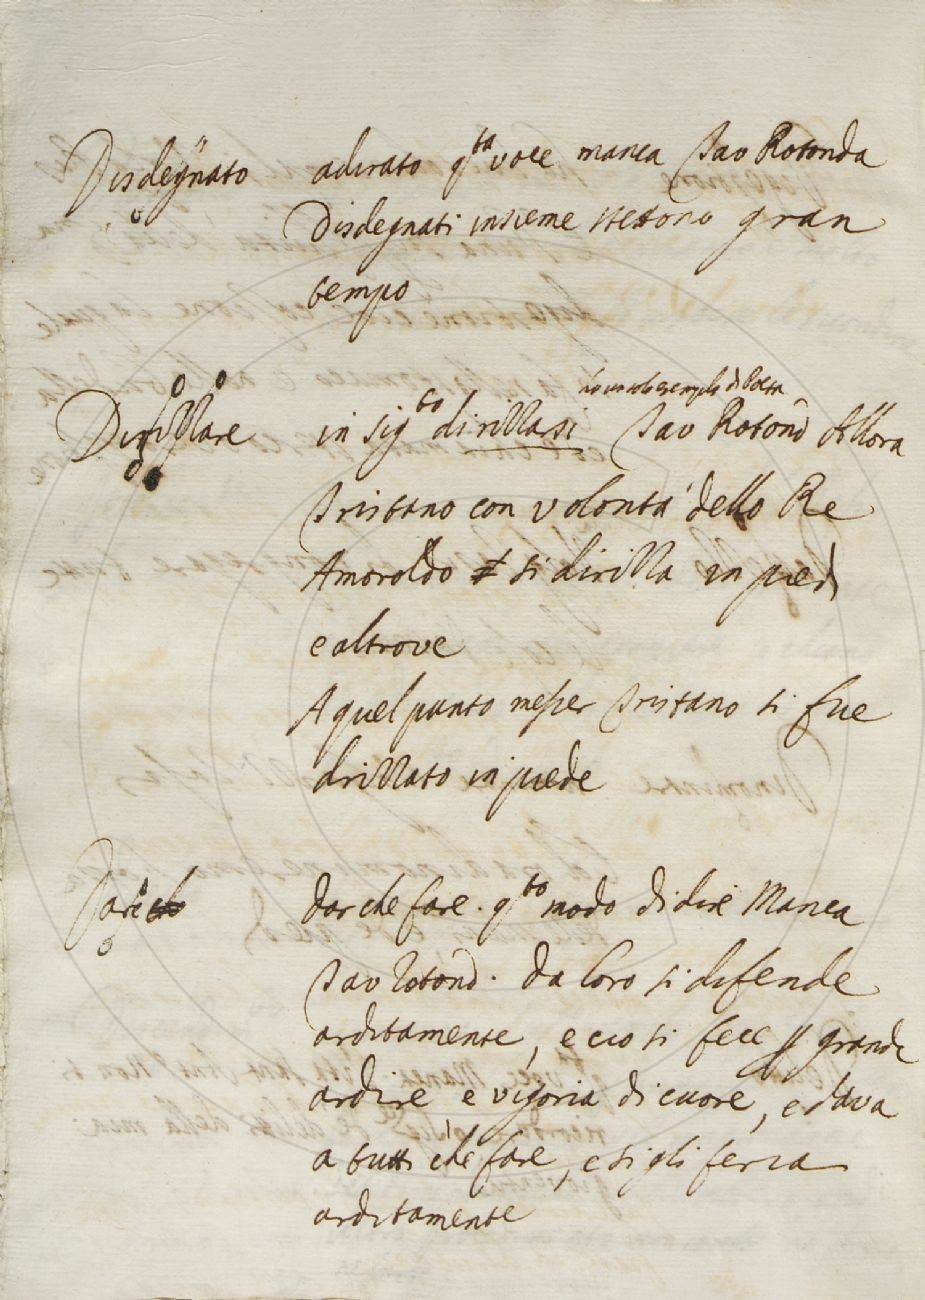 Disdegnato adirato q.ta voce manca Tav Rotonda
Disdegnati insieme stettono gran
tempo
Dirizzare in sig.to dirizzasi Tav Rotond Allora
Tristano con volontà dello Re
Amoroldo si dirizza in piedi
e altrove
A quel punto messer Tristano si fue
drizzato in piede
Dare dar che fare. q.to modo di dire Manca
Tav Rotond. da loro si difende
arditamente, e cio si fece p grande
ardire e vigoria di cuore, e dava
a tutti che fare, e si gli feria
arditamente